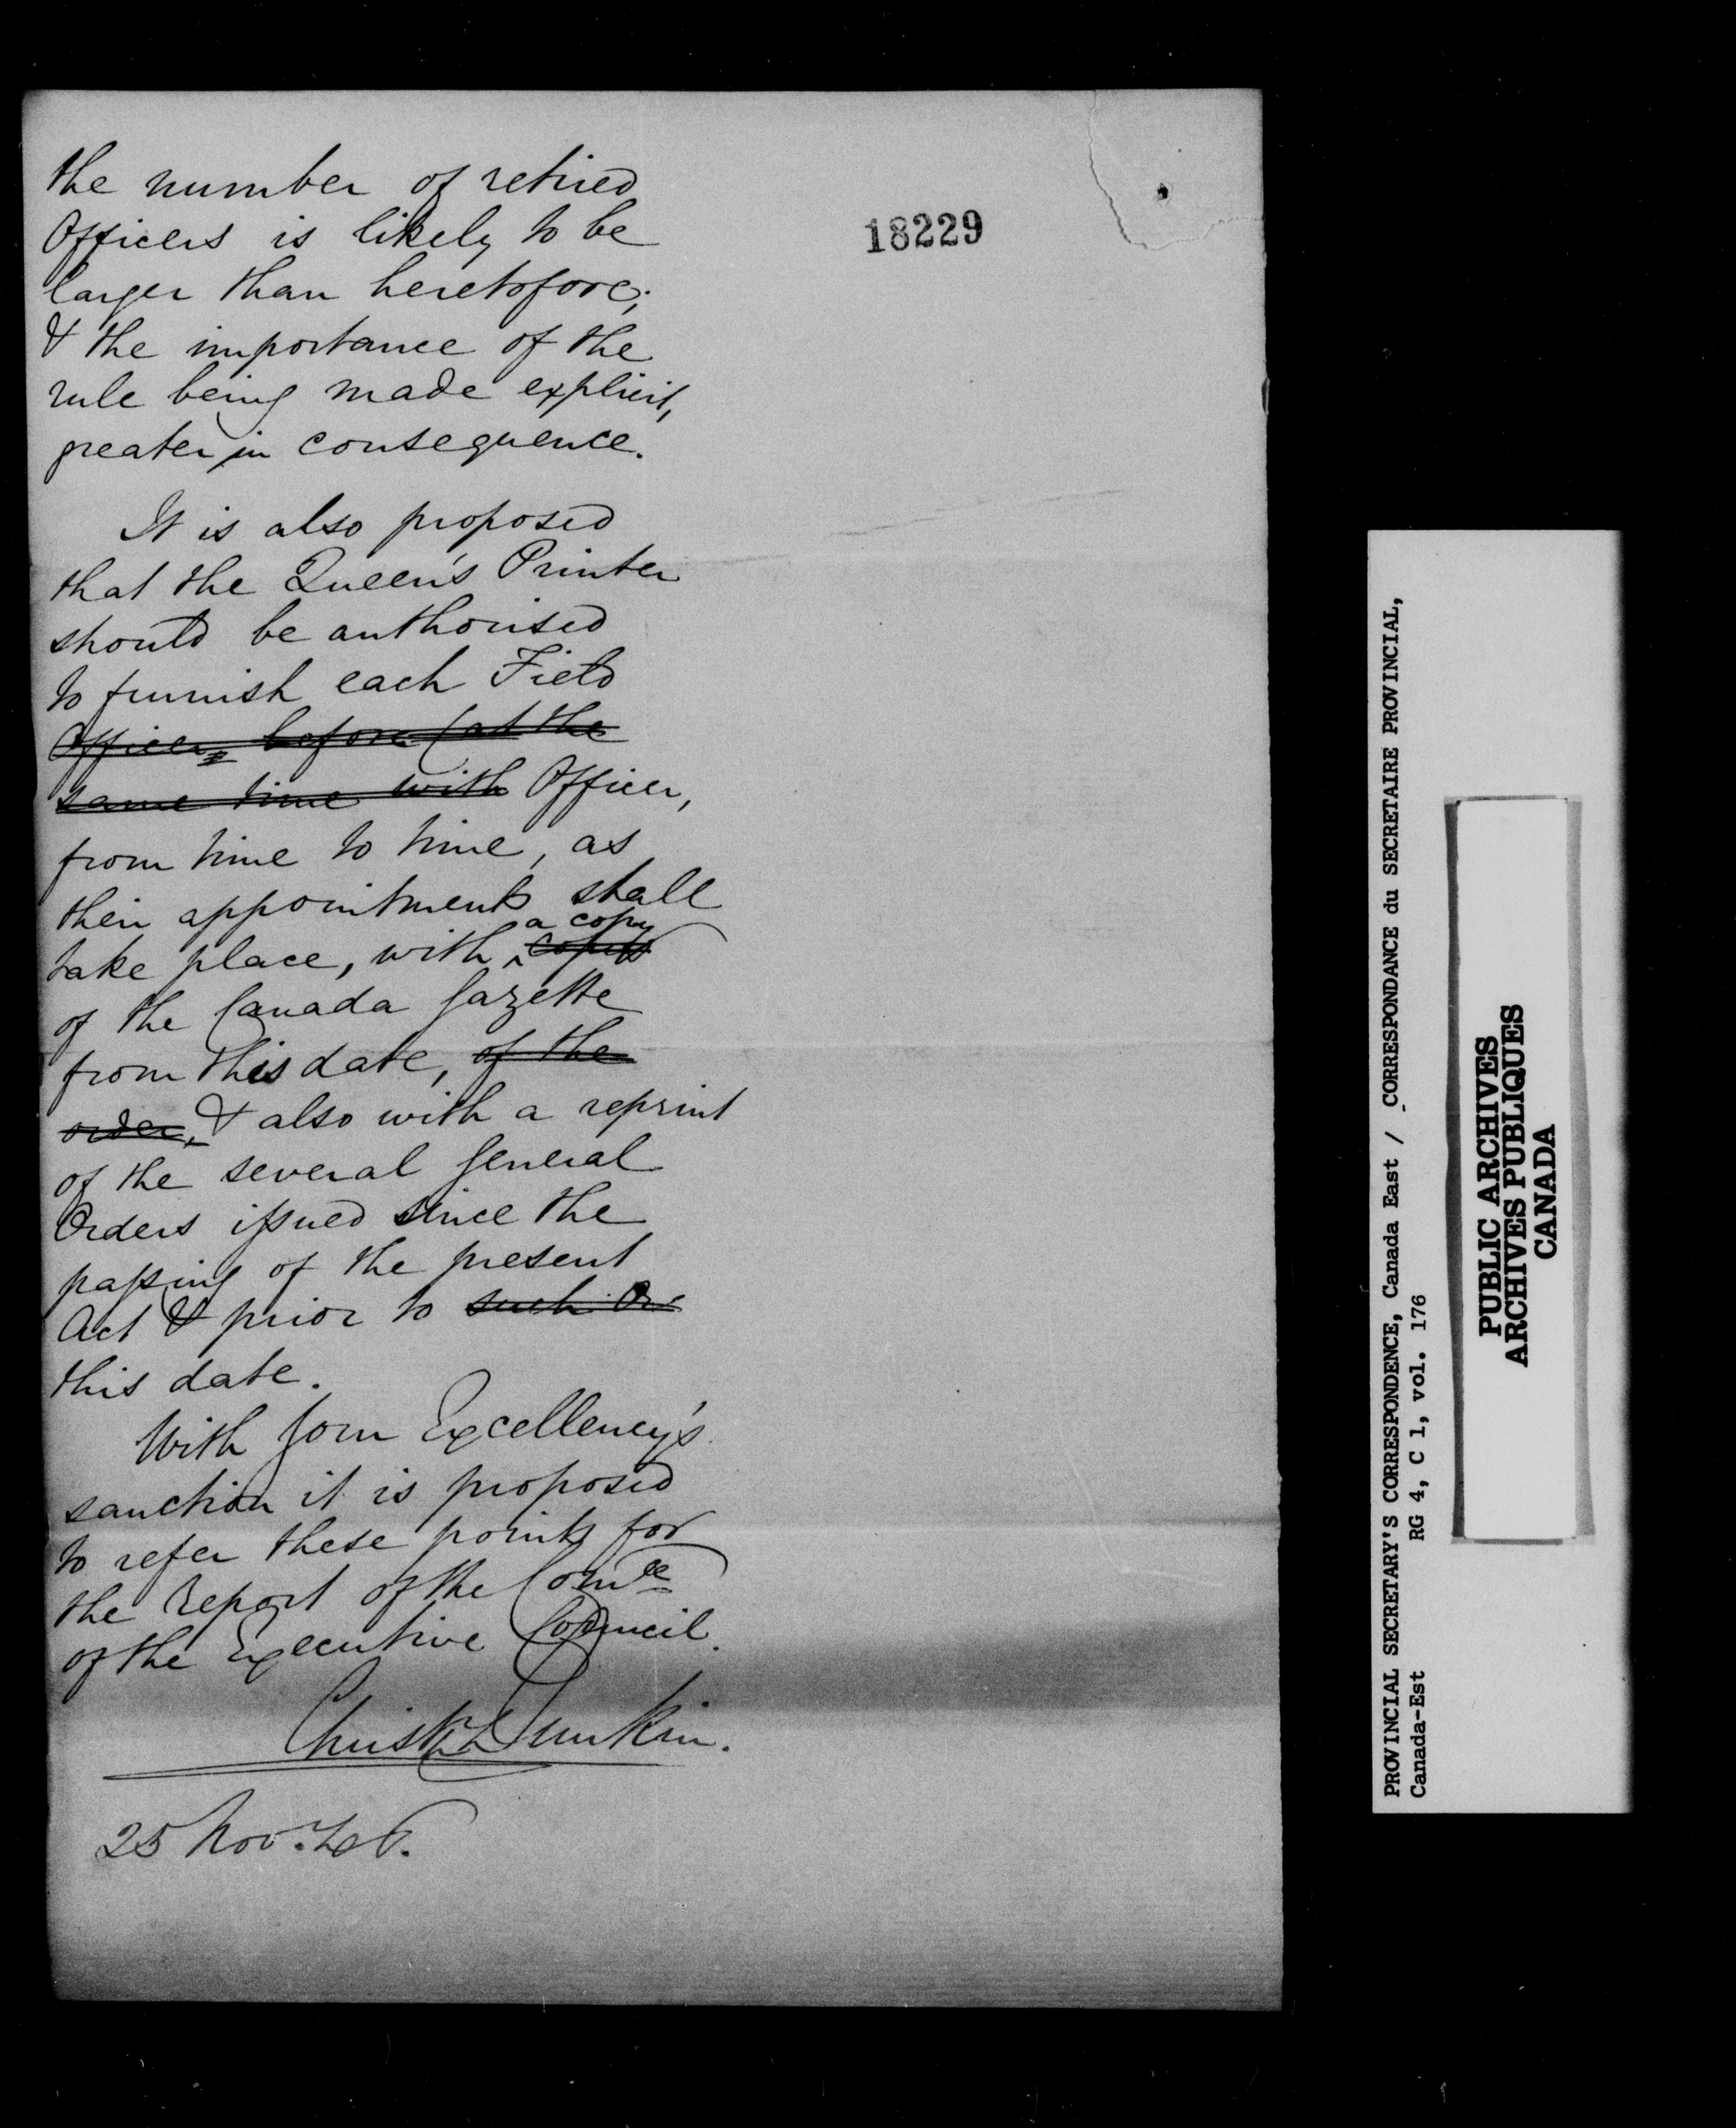 the number of retired
Officers is likely to be
larger than heretofore;
& the importance of the
rule being made explicit,
greater in consequence.
It is also proposed
that the Queen's Printer
should be authorised
to furnish each Field
Officer, before (at the
same time with Officer,
from time to time, as
their appointments shall
a copy
take place, with copies
of the Canada Gazette
from this date, of the
order, & also with a reprint
of the several General
Orders issued since the
passing of the present
Act & prior to such Or
this date.
With Your Excellency's
sanction it is proposed
to refer these points for
the report of the Comee
of the Executive Council.
Christr Dunkin.
25 Nov. 46.
18229
PROVINCIAL SECRETARY'S CORRESPONDENCE, Canada East / CORRESPONDANCE du SECRETAIRE PROVINCIAL,
Canada-Est RG 4, C 1, vol. 176
PUBLIC ARCHIVES
ARCHIVES PUBLIQUES
CANADA